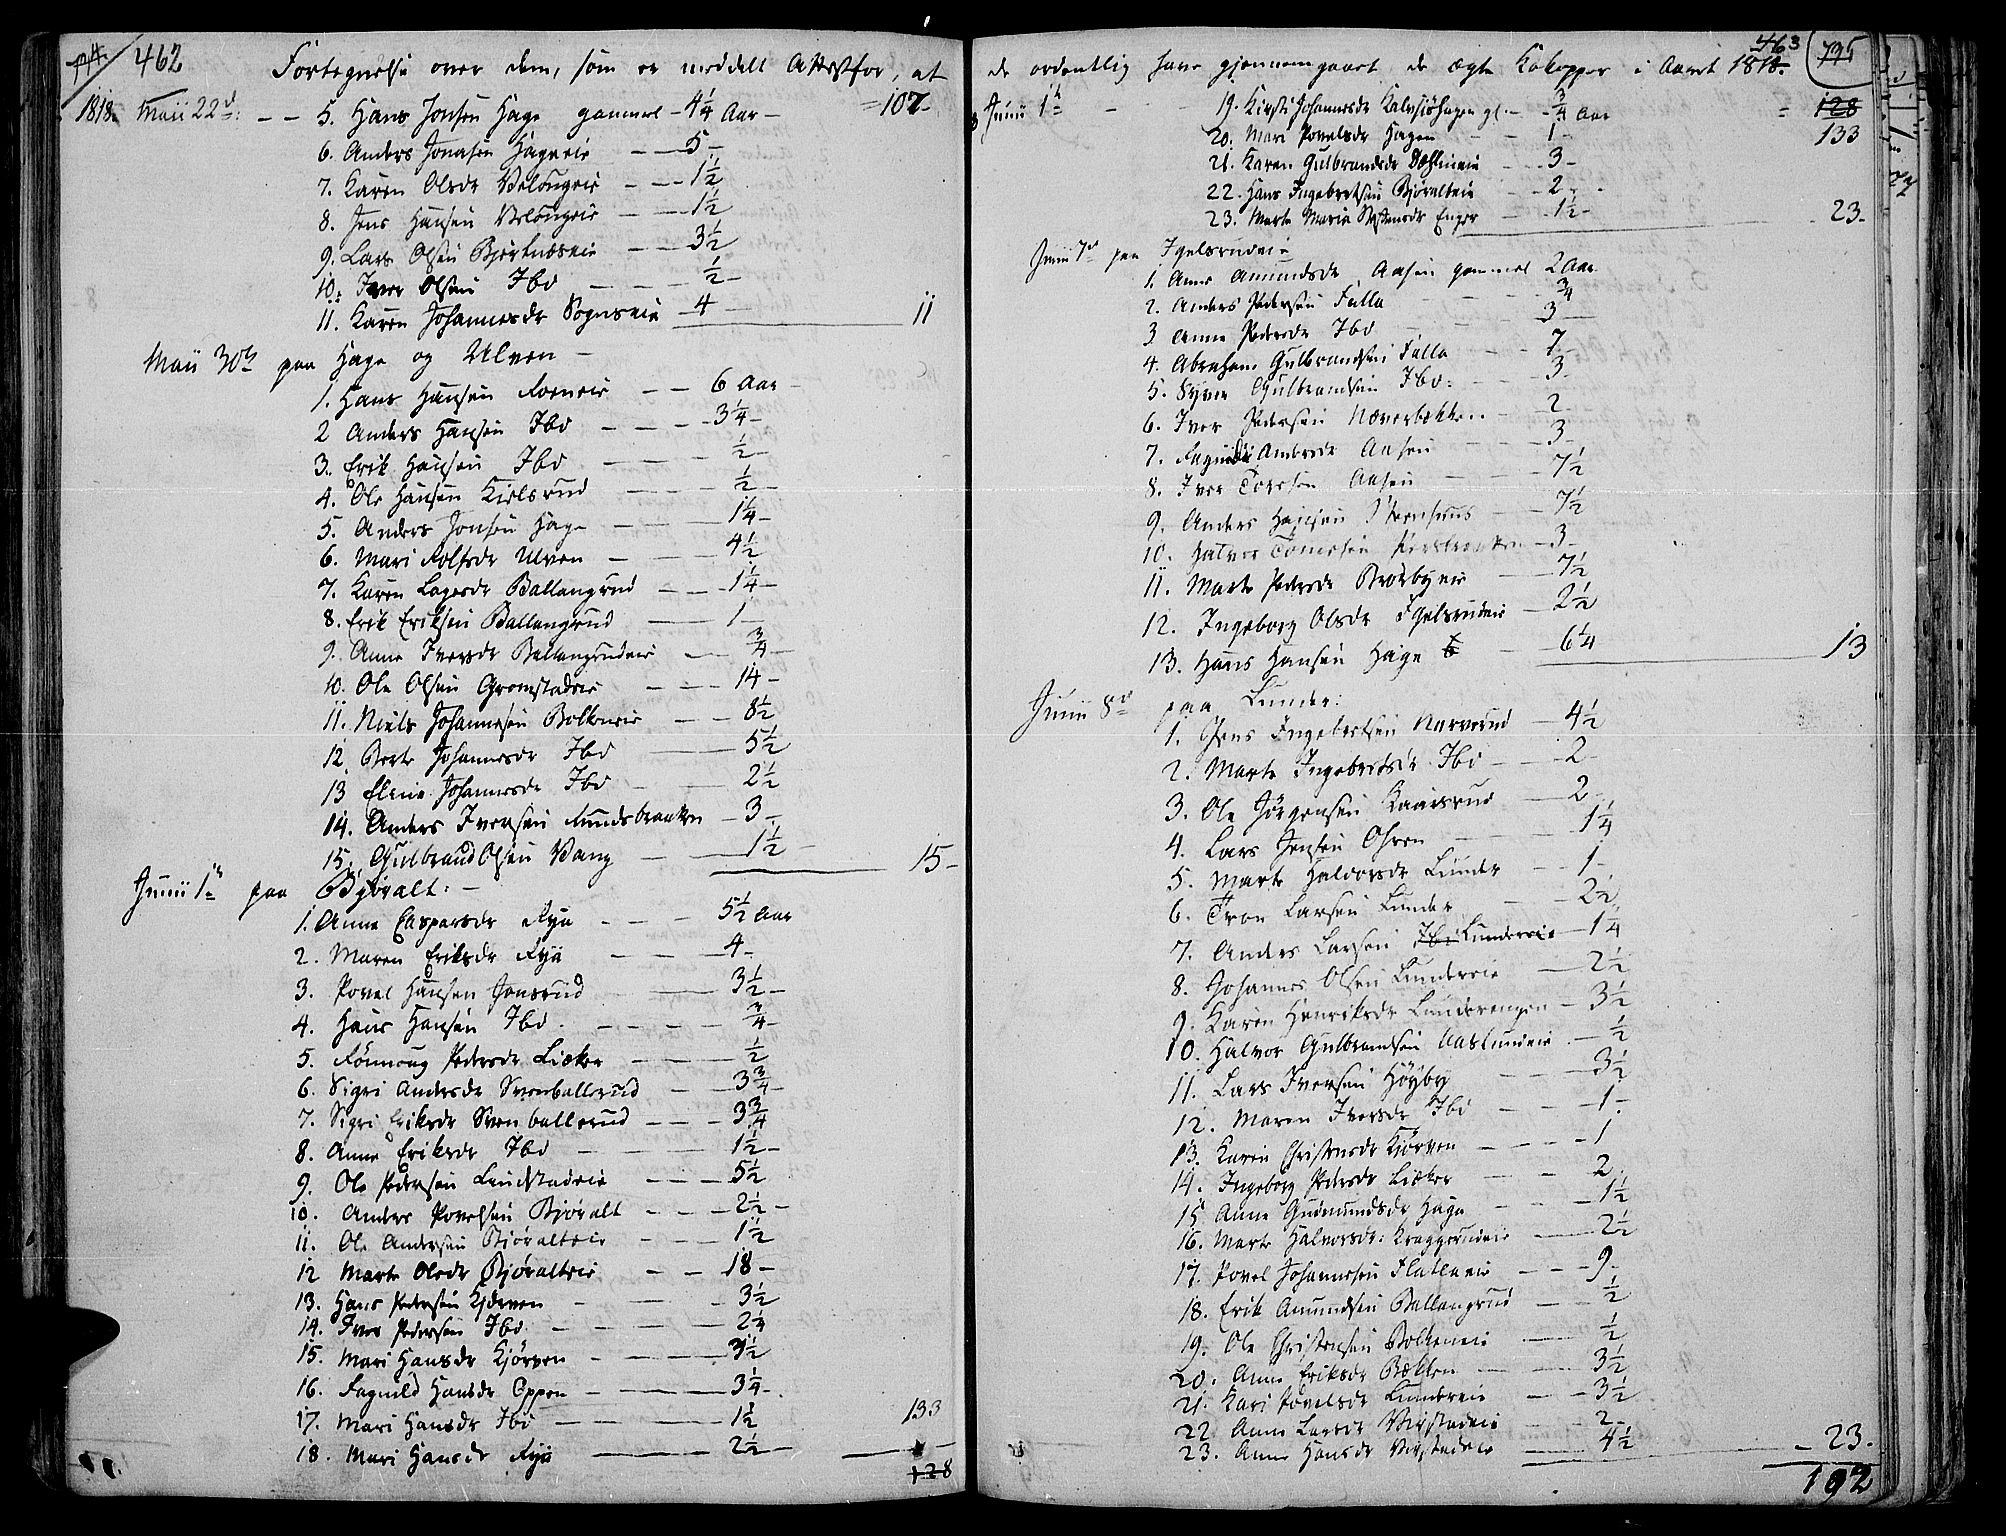 462
Fortegnelse over dem, som er meddelt Attest for, at
1818. Maii 22d: 5. Hans Jonsen Hage gammel - 4 1/4 Aar - = 107 -
6. Anders Jonasen Hageeie - 5 -
7. Karen Olsdr Velongeie - 1 1/2
8. Jens Hansen Velongeie - 1 1/2
9. Lars Olsen Bjertnæseie - 3 1/2
10. Iver Olsen Ibd - 1/2 -
11. Karen Johannesdr Sognseie - 4 - 11
Maii 30te paa Hage og Ulven -
1. Hans Hansen Roeneie - 6 Aar -
2 Anders Hansen Ibd - 3 1/4 -
3. Erik Hansen Ibd - 1/2 -
4. Ole Hansen Kielsrud - 1/2 -
5. Anders Jonsen Hage - 1 1/4 -
6. Mari Rolfsdr Ulven - 4 1/2
7. Karen Lagesdr Ballangrud - 1 1/4 -
8. Erik Eriksen Ballangrud - 1 -
9. Anne Iversdr Ballangrudeie - 3/4
10. Ole Olsen Gromstadeie - 14 -
11. Niels Johannesen Bolkeneie - 8 1/2
12 Berte Johannesdr Ibd - 5 1/2
13 Elene Johannesdr Ibd - 2 1/2
14. Anders Iversen Lundsbraaten - 3 -
15. Gulbrand Olsen Vang - 1 1/2 - 15 -
Junii 1te paa Bjøralt: -
1. Anne Caspersdr Rya - 5 1/2 Aar
2. Maren Eriksdr Rya - 4 -
3. Povel Hansen Jonsrud - 3 1/2 -
4. Hans Hansen Ibd. - 3/4 -
5. Rønnoug Pedersdr Lieker - 1/2 -
6. Sigri Andersdr Svenballerud - 3 3/4 -
7. Sigri Eriksdr Svenballerud - 3 3/4
8. Anne Eriksdr Ibd - 1 1/2 -
9. Ole Pedersen Lundstadeie - 5 1/2
10. Anders Povelsen Bjøralt - 2 1/2 -
11. Ole Andersen Bjøralteie - 1 1/2
12 Marte Olsdr Bjøralteie - 18 -
13. Hans Pedersen Kjørven - 3 1/2
14. Iver Pedersen Ibd - 2 1/4
15. Mari Hansdr Kjørven - 3 1/2
16. Ragnild Hansdr Oppen - 3 1/4 -
17. Mari Hansdr Ibd - 1 1/2 133
18. Mari Hansdr Rya - 2 1/2 -
128
463
de ordentlig have gjennemgaaet de ægte Kokopper i Aaret 1818.
Junii 1te - 19. Kirsti Johannesdr Kalvsjøhagen gl. - 3/4 Aar = 128
20. Mari Povelsdr Hagen - 1 - 133
21. Karen Gulbrandsdr Dæhlineie - 3 -
22. Hans Ingebretsen Bjøralteie - 2 -
23. Marte Maria Steensdr Enger - 1 1/2 - 23 -
Junii 7de paa Igelsrudeie
1. Anne Amundsdr Aasen gammel 2 Aar
2. Anders Pedersen Falla - 3/4
3 Anne Pedersdr Ibd - 3 -
4. Abraham Gulbrandsen Falla - 7 -
5. Syver Gulbrandsen Ibd: - 3 -
6. Iver Pedersen Næverbækken - 2 -
7. Ragnild Andersdr Aasen - 3 -
8. Iver Toresen Aasen - 7 1/2
9. Anders Hansen Steenhuus - 7 1/2
10. Halvor - 3 -
11. Marte Pedersdr Brørbyeie - 7 1/2
12. Ingeborg Olsdr Igelsrudeie - 2 1/2
13. Hans Hansen Hage - 6 1/4 13
Junii 8de paa Lunder:
1. Jens Ingebretsen Narverud - 4 1/2
2. Marte Ingebretsdr Ibd - 2 -
3. Ole Jørgensen Kaarsrud - 2 -
4. Lars Jensen Ohren - 1 1/4
5. Marte Halvorsdr Lunder - 1 -
6. Tron Larsen Lunder - 2 1/2
7. Anders Larsen Ibd Lundereie - 1 1/4
8. Johannes Olsen Lundereie - 2 1/2
9. Karen Henriksdr Lunderengen - 3 1/2
10. Halvor Gulbrandsen Aaslundeie - 1/2
11. Lars Iversen Høyby - 3 1/2
12. Maren Iversdr Ibd - 1 -
13. Karen Christensdr Kjørven - 1
14. Ingeborg Pedersdr Lieker - 2 -
15. Anne Gudmundsdr Hage - 1 1/2
16. Marte Halvorsdr: Kraggerudeie - 2 1/2
17. Povel Johannesen Flatlaeie - 9 -
18. Erik Amundsen Ballangrud - 1/2
19. Ole Christensen Bolkeneie - 1/2
20. Anne Eriksdr Bækken - 3 1/2
21. Kari Povelsdr Lundereie - 3 1/2
22. Anne Larsdr Vigstadeie - 2 -
23. Anne Hansdr Vigstadeie - 4 1/2 - 23 -
192